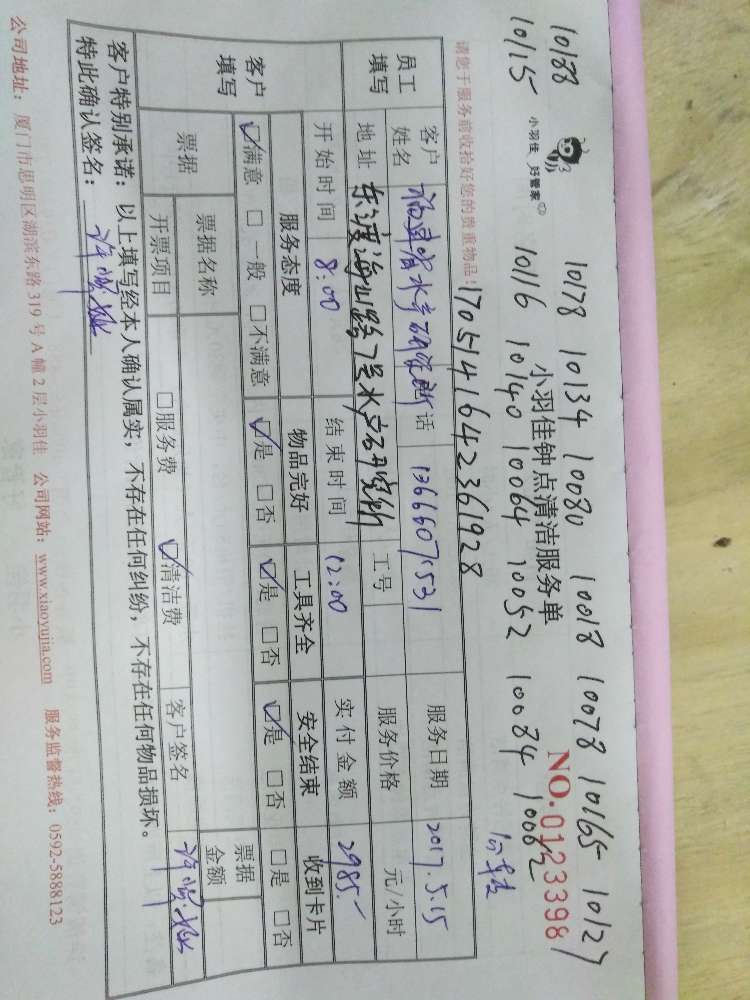 10188 10178 10134 10080 10018 10078 10165 10127
10115 10116 10140 10064 10052 10084 10062
小羽佳 好管家
小羽佳钟点清洁服务单
NO.0123398
请您于服务前收拾好您的贵重物品!
1705141642361928
员工填写 客户姓名 福建省水产研究所 电话 13666075531 服务日期 2017.5.15
地址 东渡海山路7号水产研究所 工号 服务价格 元/小时
开始时间 8:00 结束时间 12:00 实付金额 2985.-
客户填写 服务态度 物品完好 工具齐全 安全结束 收到卡片
☑满意 □一般 □不满意 ☑是 □否 ☑是 □否 ☑是 □否 □是 □否
票据 票据名称 票据金额
开票项目 □服务费 ☑清洁费 客户签名
客户特别承诺：以上填写经本人确认属实，不存在任何纠纷，不存在任何物品损坏。
特此确认签名：
公司地址：厦门市思明区湖滨东路319号A幢2层小羽佳 公司网站：www.xiaoyujia.com 服务监督热线：0592-5888123